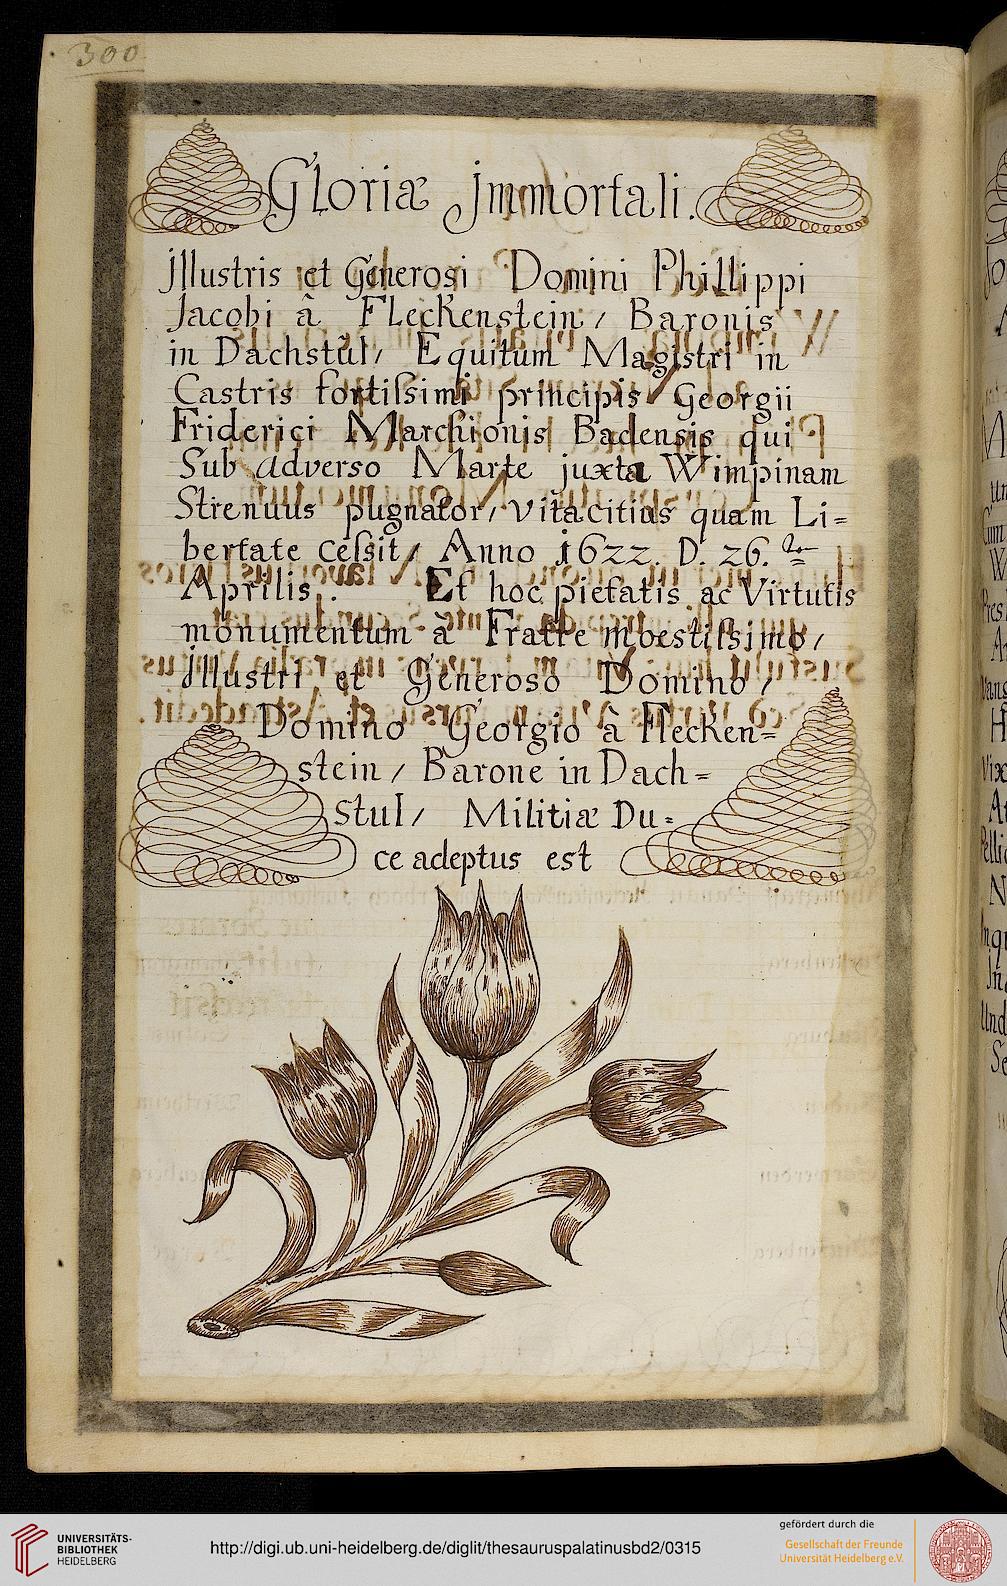 300.
Gloriæ Jmmortali.
Jllustris et Generosi Domini Phillippi
Jacobi â Fleckenstein / Baronis
in Dachstûl / Equitum Magistri in
Castris fortiſsimi principis Georgii
Friderici Marchionis Badensis qui
Sub adverso Marte juxta Wimpinam
Strenuus pugnator / vita citius quam Li=
bertate ceſsit / Anno 1622. D. 26.
Aprilis. Et hoc pietatis ac Virtutis
monumentum â Fratre moestiſsimo /
Jllustri et Generoso Domino /
Domino Georgio â Flecken=
stein / Barone in Dach=
stul / Militiæ Du=
ce adeptus est
UNIVERSITÄTS-
BIBLIOTHEK
HEIDELBERG
http://digi.ub.uni-heidelberg.de/diglit/thesauruspalatinusbd2/0315
gefördert durch die
Gesellschaft der Freunde
Universität Heidelberg e.V.